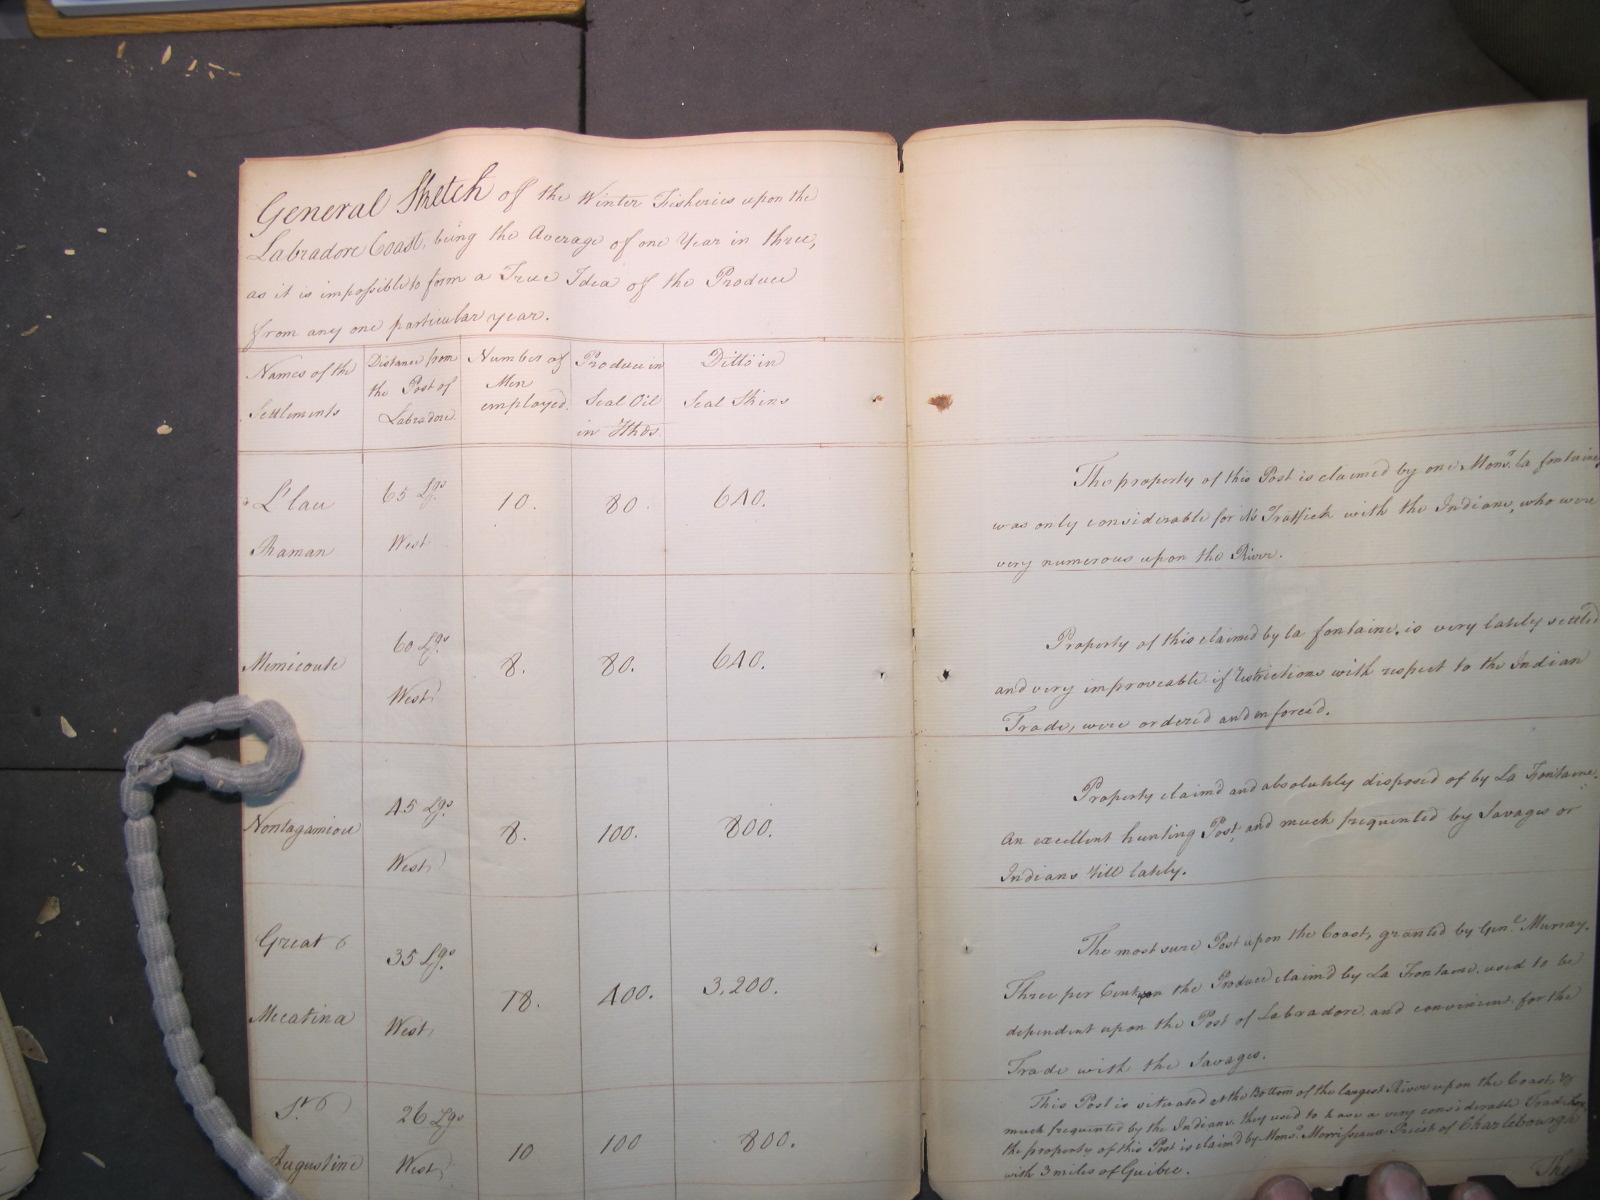 General Sketch of the Winter Fisheries upon the
Labradore Coast, being the Average of one Year in three,
as it is impossible to form a True Idea of the Produce
from any one particular year.
Names of the Settlements
Distance from the Post of Labradore
Number of Men employed.
Produce in Seal Oil in Hhds.
Ditto in Seal Skins
L'lau Raman
65 Lgs. West
10.
80.
640.
The property of this Post is claimed by one Monsr. la fontaine,
was only considerable for it's Traffick with the Indians, who were
very numerous upon the River.
Memicoute
60 Lgs. West
8.
80.
640.
Property of this claimed by la fontaine, is very lately settled
and very improveable if restrictions with respect to the Indian
Trade, were ordered and enforced.
Nontagamiou
45 Lgs. West
8.
100.
800.
Property claim'd and absolutely disposed of by La Fontaine.
An excellent hunting Post, and much frequented by Savages or
Indians 'till lately.
Great Mecatina
35 Lgs. West
18.
400.
3,200.
The most sure Post upon the Coast, granted by Genl. Murray.
Three per Cent upon the Produce claim'd by La Fontaine, used to be
dependent upon the Post of Labradore, and convenient for the
Trade with the Savages.
St. Augustine
26 Lgs. West
10
100
800.
This Post is situated at the Bottom of the largest River upon the Coast, &
much frequented by the Indians, they used to have a very considerable Trade here,
the property of this Post is claim'd by Monsr. Morrisseaux Priest of Charlebourgh
with 3 miles of Quibec.
The